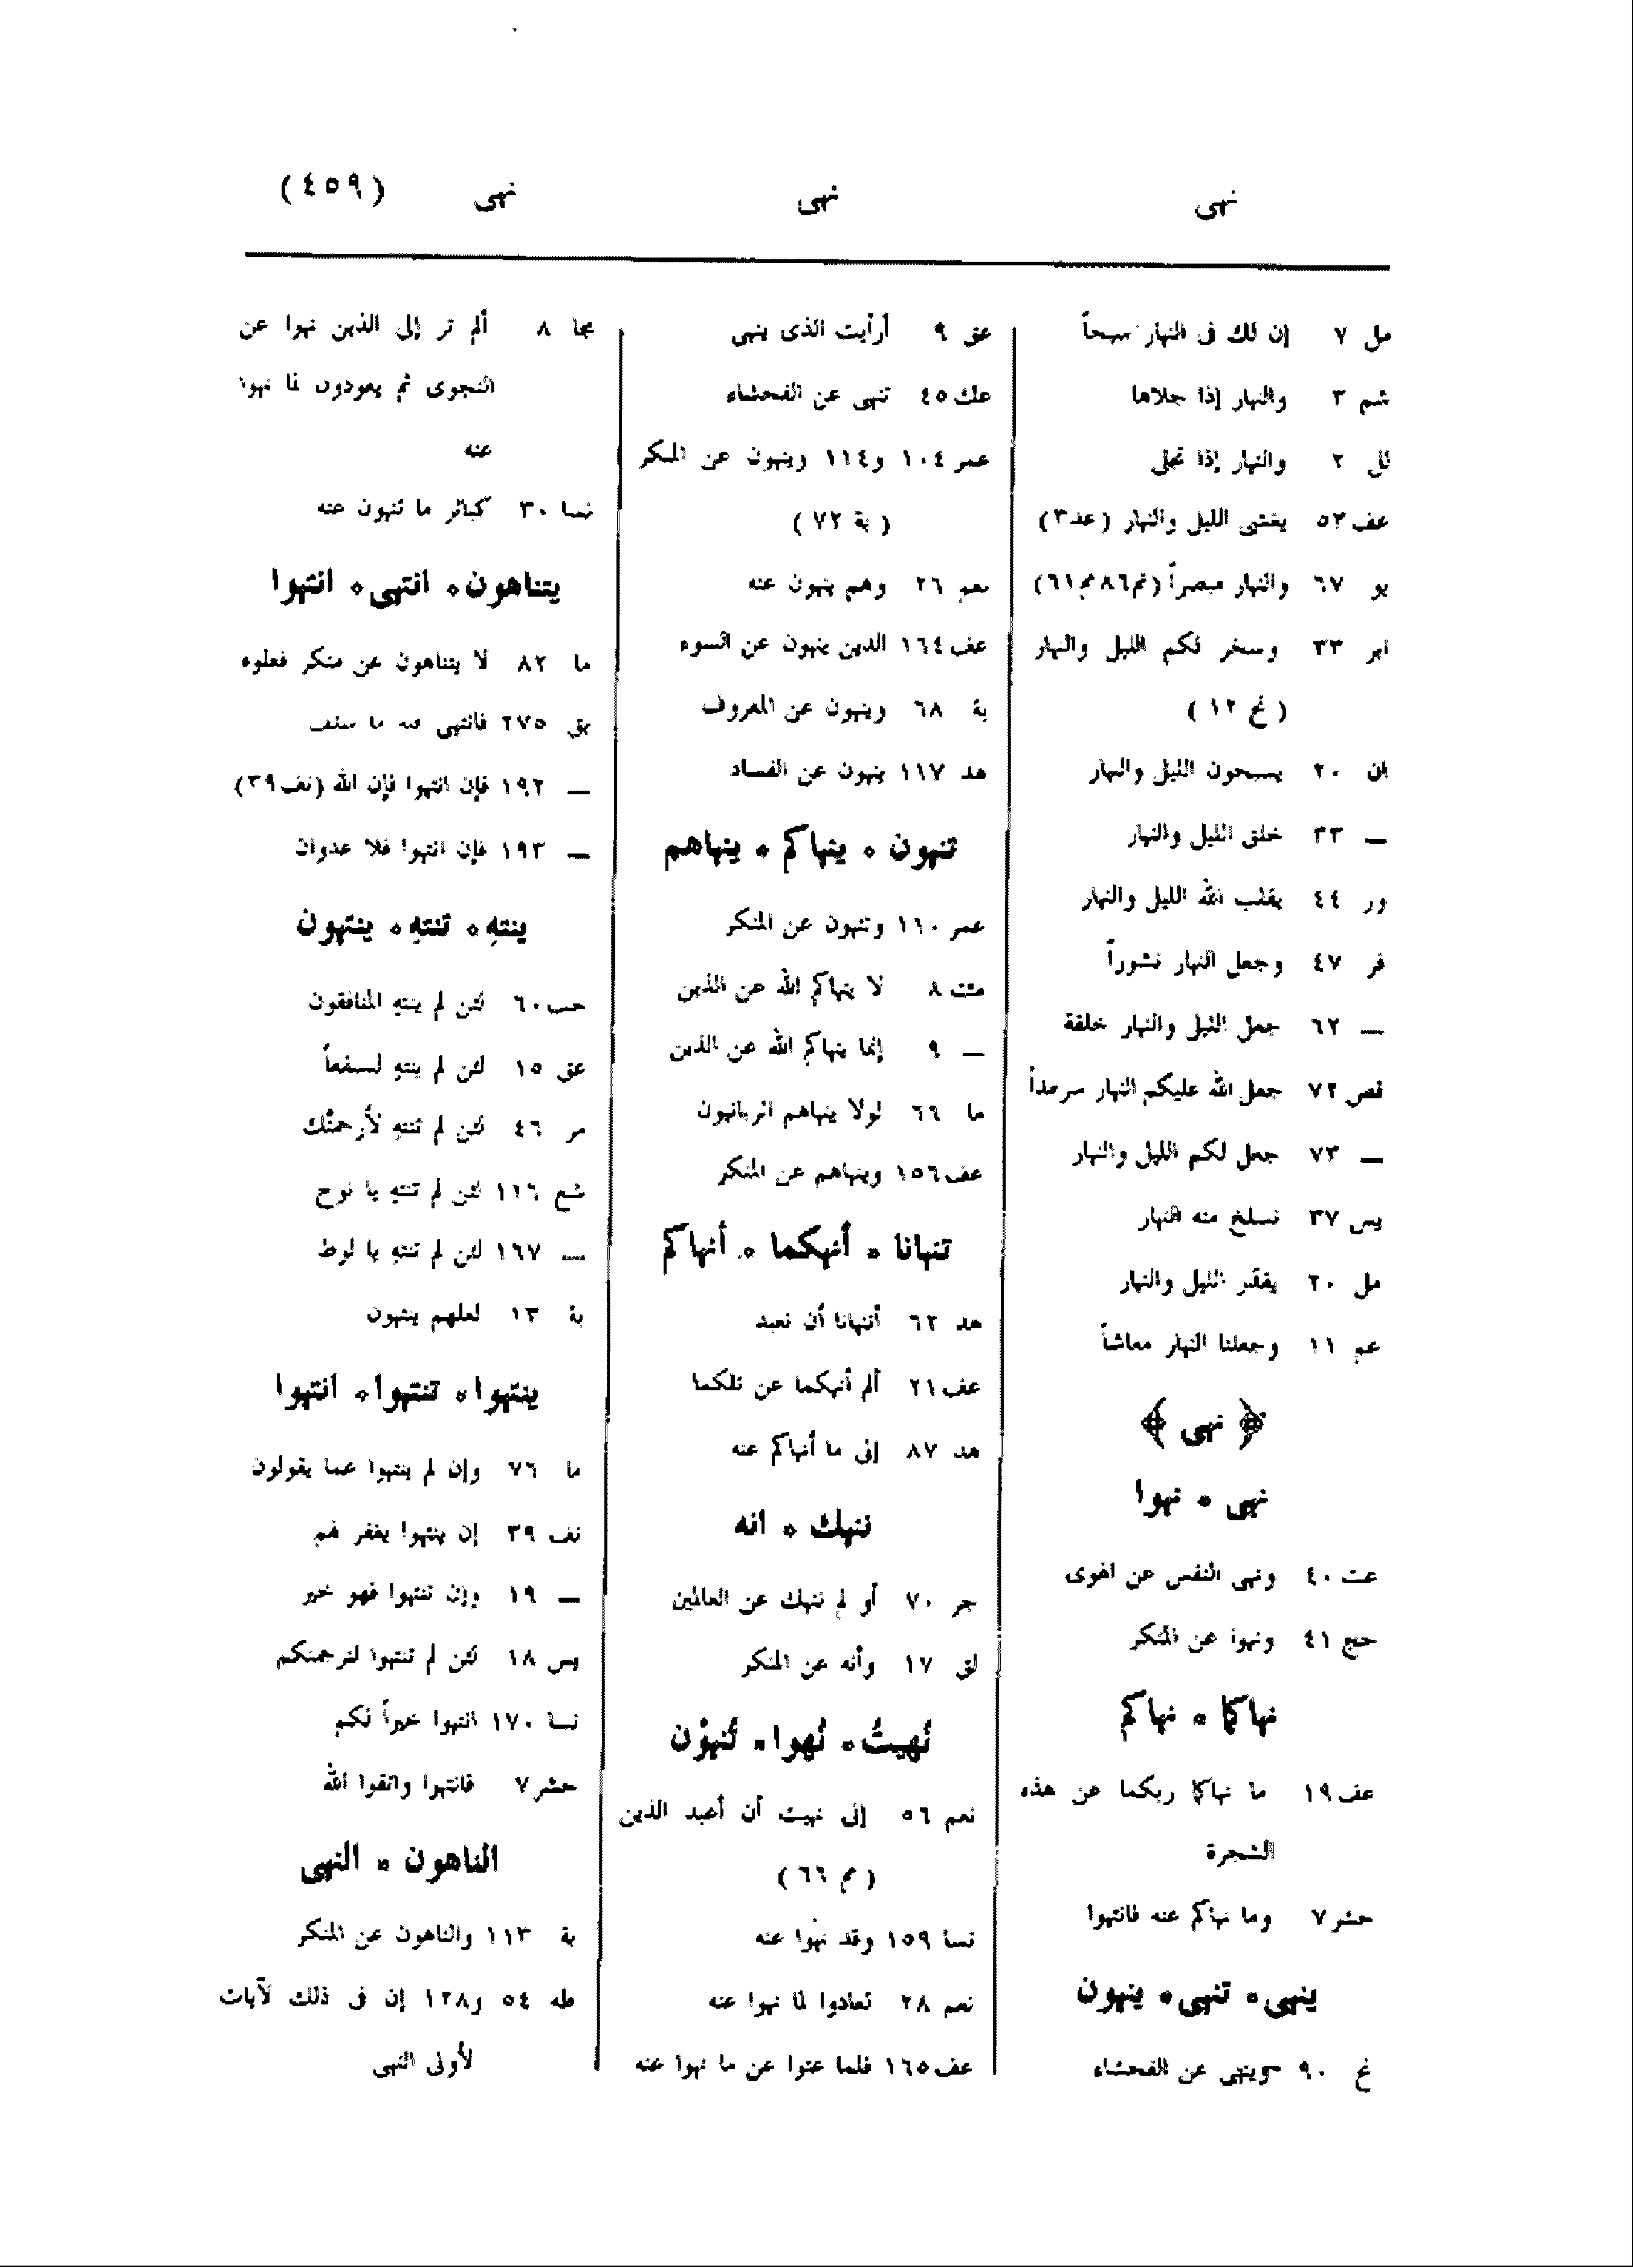 نهى نهى نهى (٤٥٩)
مل ٧ إن لك فى النهار سبحاً
شم ٣ والنهار إذا جلاها
لل ٢ والنهار إذا تجلى
عف ٥٣ يغشى الليل والنهار (عد٣)
يو ٦٧ والنهار مبصراً (نم٨٦ م٦١)
ابر ٣٣ وسخر لكم الليل والنهار
(نح ١٢)
ان ٢٠ يسبحون الليل والنهار
ــ ٣٣ خلق الليل والنهار
ور ٤٤ يقلب الله الليل والنهار
فر ٤٧ وجعل النهار نشوراً
ــ ٦٢ جعل الليل والنهار خلفة
قص ٧٢ جعل الله عليكم النهار سرمداً
ــ ٧٣ جعل لكم الليل والنهار
يس ٣٧ نسلخ منه النهار
مل ٢٠ يقدّر الليل والنهار
عم ١١ وجعلنا النهار معاشاً
﴿ نهى ﴾
نهى ٠ نهوا
عت ٤٠ ونهى النفس عن الهوى
حج ٤١ ونهوا عن المنكر
نهاكما ٠ نهاكم
عف ١٩ ما نهاكما ربكما عن هذه
الشجرة
حشر ٧ وما نهاكم عنه فانتهوا
ينهى ٠ تنهى ٠ ينهون
نح ٩٠ وينهى عن الفحشاء
عق ٩ أرأيت الذى ينهى
عك ٤٥ تنهى عن الفحشاء
عمر ١٠٤ و١١٤ وينهون عن المنكر
(بة ٧٢)
نعم ٢٦ وهم ينهون عنه
عف ١٦٤ الذين ينهون عن السوء
بة ٦٨ وينهون عن المعروف
هد ١١٧ ينهون عن الفساد
تنهون ٠ ينهاكم ٠ ينهاهم
عمر ١١٠ وتنهون عن المنكر
مت ٨ لا ينهاكم الله عن الذين
ــ ٩ إنما ينهاكم الله عن الذين
ما ٦٦ لولا ينهاهم الربانيون
عف ١٥٦ وينهاهم عن المنكر
تنهانا ٠ أنهكما ٠ أنهاكم
هد ٦٢ أتنهانا أن نعبد
عف ٢١ ألم أنهكما عن تلكما
هد ٨٧ إلى ما أنهاكم عنه
ننهك ٠ انه
جر ٧٠ أو لم ننهك عن العالمين
لق ١٧ وأنه عن المنكر
نُهيتُ ٠ نُهوا ٠ تُنهوْن
نعم ٥٦ إنى نهيت أن أعبد الذين
(م ٦٦)
نسا ١٥٩ وقد نهُوا عنه
نعم ٢٨ لعادوا لما نهوا عنه
عف ١٦٥ فلما عتوا عن ما نهوا عنه
مجا ٨ ألم تر إلى الذين نهوا عن
النجوى ثم يعودون لما نهوا
عنه
نسا ٣٠ كبائر ما تنهون عنه
يتناهون ٠ انتهى ٠ انتهوا
ما ٨٢ لا يتناهون عن منكر فعلوه
بق ٢٧٥ فانتهى فله ما سلف
ــ ١٩٢ فإن انتهوا فإن الله (نف ٣٩)
ــ ١٩٣ فإن انتهوا فلا عدوان
ينتهِ ٠ تنتهِ ٠ ينتهون
حب ٦٠ لئن لم ينته المنافقون
عق ١٥ لئن لم ينته لنسفعاً
مر ٤٦ لئن لم تنته لأرجمنّك
شع ١١٦ لئن لم تنته يا نوح
ــ ١٦٧ لئن لم تنته يا لوط
بة ١٣ لعلهم ينتهون
ينتهوا ٠ تنتهوا ٠ انتهوا
ما ٧٦ وإن لم ينتهوا عما يقولون
نف ٣٩ إن ينتهوا يغفر لهم
ــ ١٩ وإن تنتهوا فهو خير
يس ١٨ لئن لم تنتهوا لنرجمنكم
نسا ١٧٠ انتهوا خيراً لكم
حشر ٧ فانتهوا واتقوا الله
الناهون ٠ النهى
بة ١١٣ والناهون عن المنكر
طه ٥٤ و١٢٨ إن فى ذلك لآيات
لأولى النهى